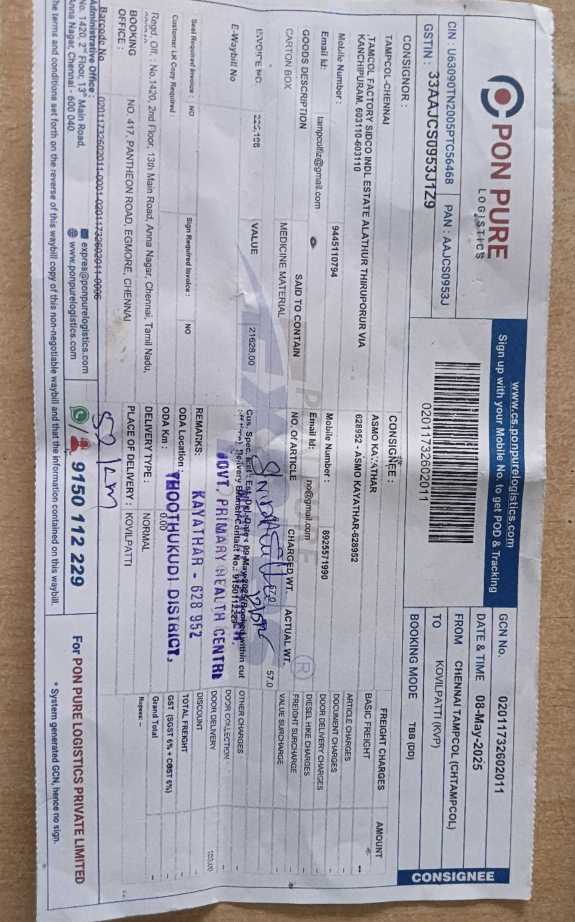 PON PURE
LOGISTICS
www.cs.ponpurelogistics.com
Sign up with your Mobile No. to get POD & Tracking
CIN : U63090TN2005PTC56468
PAN : AAJCS0953J
GSTIN : 33AAJCS0953J1Z9
02011732602011
GCN No. 02011732602011
DATE & TIME 08-May-2025
FROM CHENNAI TAMPCOL (CHTAMPCOL)
TO KOVILPATTI (KVP)
BOOKING MODE TBB (DD)
CONSIGNEE
CONSIGNOR :
TAMPCOL-CHENNAI
,TAMCOL FACTORY SIDCO INDL ESTATE ALATHUR THIRUPORUR VIA
KANCHIPURAM, 603110-603110
Mobile Number : 9445110794
Email Id: tampcolfiz@gmail.com
CONSIGNEE :
ASMO KAYATHAR
628952 - ASMO KAYATHAR-628952
Mobile Number : 8925571990
Email Id : no@gmail.com
GOODS DESCRIPTION
SAID TO CONTAIN
NO. OF ARTICLE
CHARGED WT.
ACTUAL WT.
CARTON BOX
MEDICINE MATERIAL
57.0
57.0
INVOICE NO:
VALUE
21629.00
E-Waybill No
FREIGHT CHARGES
AMOUNT
BASIC FREIGHT
ARTICLE CHARGES
DOCUMENT CHARGES
DOOR DELIVERY CHARGES
DIESEL HIKE CHARGES
FREIGHT SURCHARGE
VALUE SURCHARGE
OTHER CHARGES
DOOR COLLECTION
DOOR DELIVERY
DISCOUNT
TOTAL FREIGHT
GST (SGST 6% + CGST 6%)
Grand Total
Rupees: --
R
GOVT. PRIMARY HEALTH CENTRE
KAYATHAR - 628 952
THOOTHUKUDI DISTRICT.
Seal Required Invoice : NO
Sign Required Invoice : NO
Customer LR Copy Required
REMARKS:
ODA Location
ODA Km : 0.00
Regd. Off. : No.1420, 2nd Floor, 13th Main Road, Anna Nagar, Chennai, Tamil Nadu,
BOOKING OFFICE : NO, 417, PANTHEON ROAD, EGMORE, CHENNAI
DELIVERY TYPE : NORMAL
PLACE OF DELIVERY : KOVILPATTI
52 km
Barcode No 02011732602011-0001-02011732602011-0006
Administrative Office
No. 1420, 2nd Floor, 13th Main Road,
Anna Nagar, Chennai - 600 040
expres@ponpurelogistics.com
www.ponpurelogistics.com
9150 112 229
For PON PURE LOGISTICS PRIVATE LIMITED
* System generated GCN, hence no sign.
the terms and conditions set forth on the reverse of this waybill copy of this non-negotiable waybill and that the information contained on this waybill.